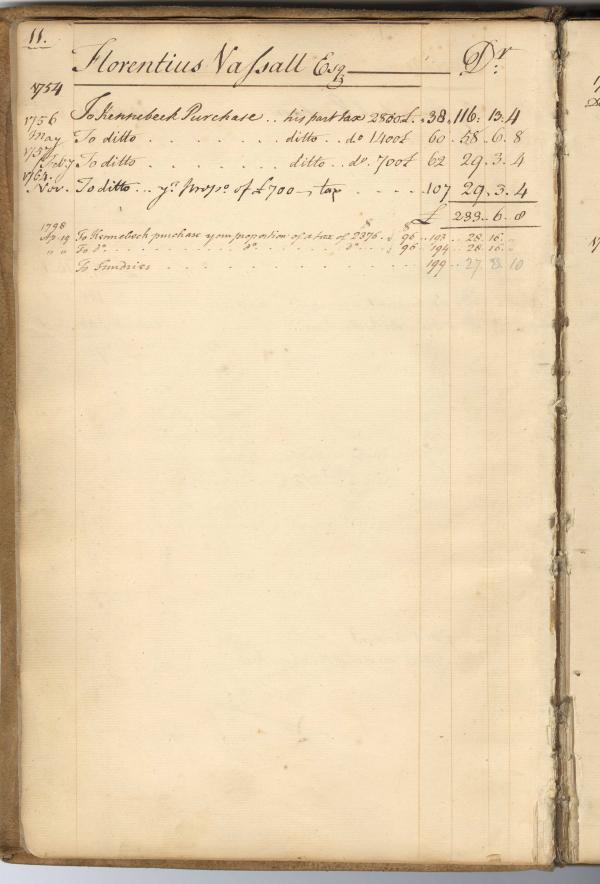 11.
Florentius Vaſsall Esqr Dr
1754
1756 To Kennebeck Purchase .. his part tax 2800£ . 38 . 116 : 13 . 4
May To ditto . . . . . . . ditto .. do 1400£ 60 .. 58 .. 6 .. 8
1757 Feb: 7 To ditto . . . . . . . ditto .. do 700£ 62 29 . 3 . 4
1764 Nov. To ditto ... yr prop. of £700 tax . . . . 107 29 . 3 . 4
£ 233 .. 6 . 8
1798
Ap. 19 To Kennebeck purchase your proportion of a tax of 2376 . $ 96 .. 193 .. 28 . 16 . "
" " To do . . . . . . . do . . . . . . . do . . $ 96 .. 194 .. 28 . 16 . "
To Sundries . . . . . . . 199 .. 27 . 8 . 10